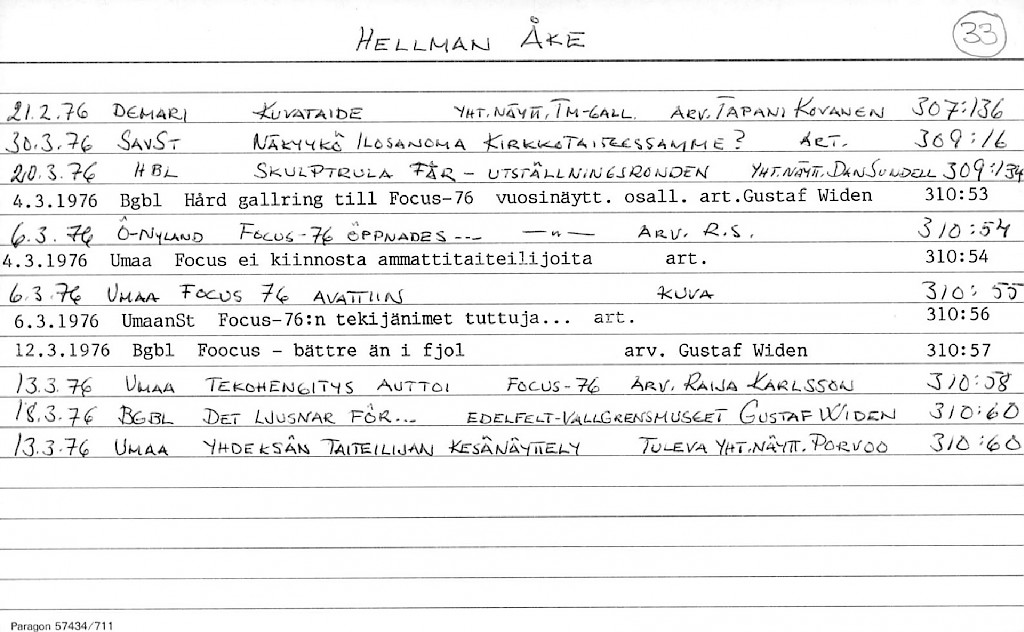 HELLMAN ÅKE 33
21.2.76 DEMARI KUVATAIDE YHT.NÄYTT. TM-GALL. ARV. TAPANI KOVANEN 307:136
30.3.76 SAVST NÄKYYKÖ ILOSANOMA KIRKKOTAITEESSAMME? ART. 309:16
20.3.76 HBL SKULPTRULA FÅR - UTSTÄLLNINGSRONDEN YHT.NÄYTT. DAN SUNDELL 309:134
4.3.1976 Bgbl Hård gallring till Focus-76 vuosinäytt. osall. art.Gustaf Widen 310:53
6.3.76 Ö-NYLAND FOCUS-76 ÖPPNADES --- —"— ARV. R.S. 310:54
4.3.1976 Umaa Focus ei kiinnosta ammattitaiteilijoita art. 310:54
6.3.76 UMAA FOCUS 76 AVATTIIN KUVA 310:55
6.3.1976 UmaanSt Focus-76:n tekijänimet tuttuja... art. 310:56
12.3.1976 Bgbl Foocus - bättre än i fjol arv. Gustaf Widen 310:57
13.3.76 UMAA TEKOHENGITYS AUTTOI FOCUS-76 ARV. RAIJA KARLSSON 310:58
18.3.76 BGBL DET LJUSNAR FÖR... EDELFELT-VALLGRENSMUSEET GUSTAF WIDEN 310:60
13.3.76 UMAA YHDEKSÄN TAITEILIJAN KESÄNÄYTTELY TULEVA YHT.NÄYTT. PORVOO 310:60
Paragon 57434/711